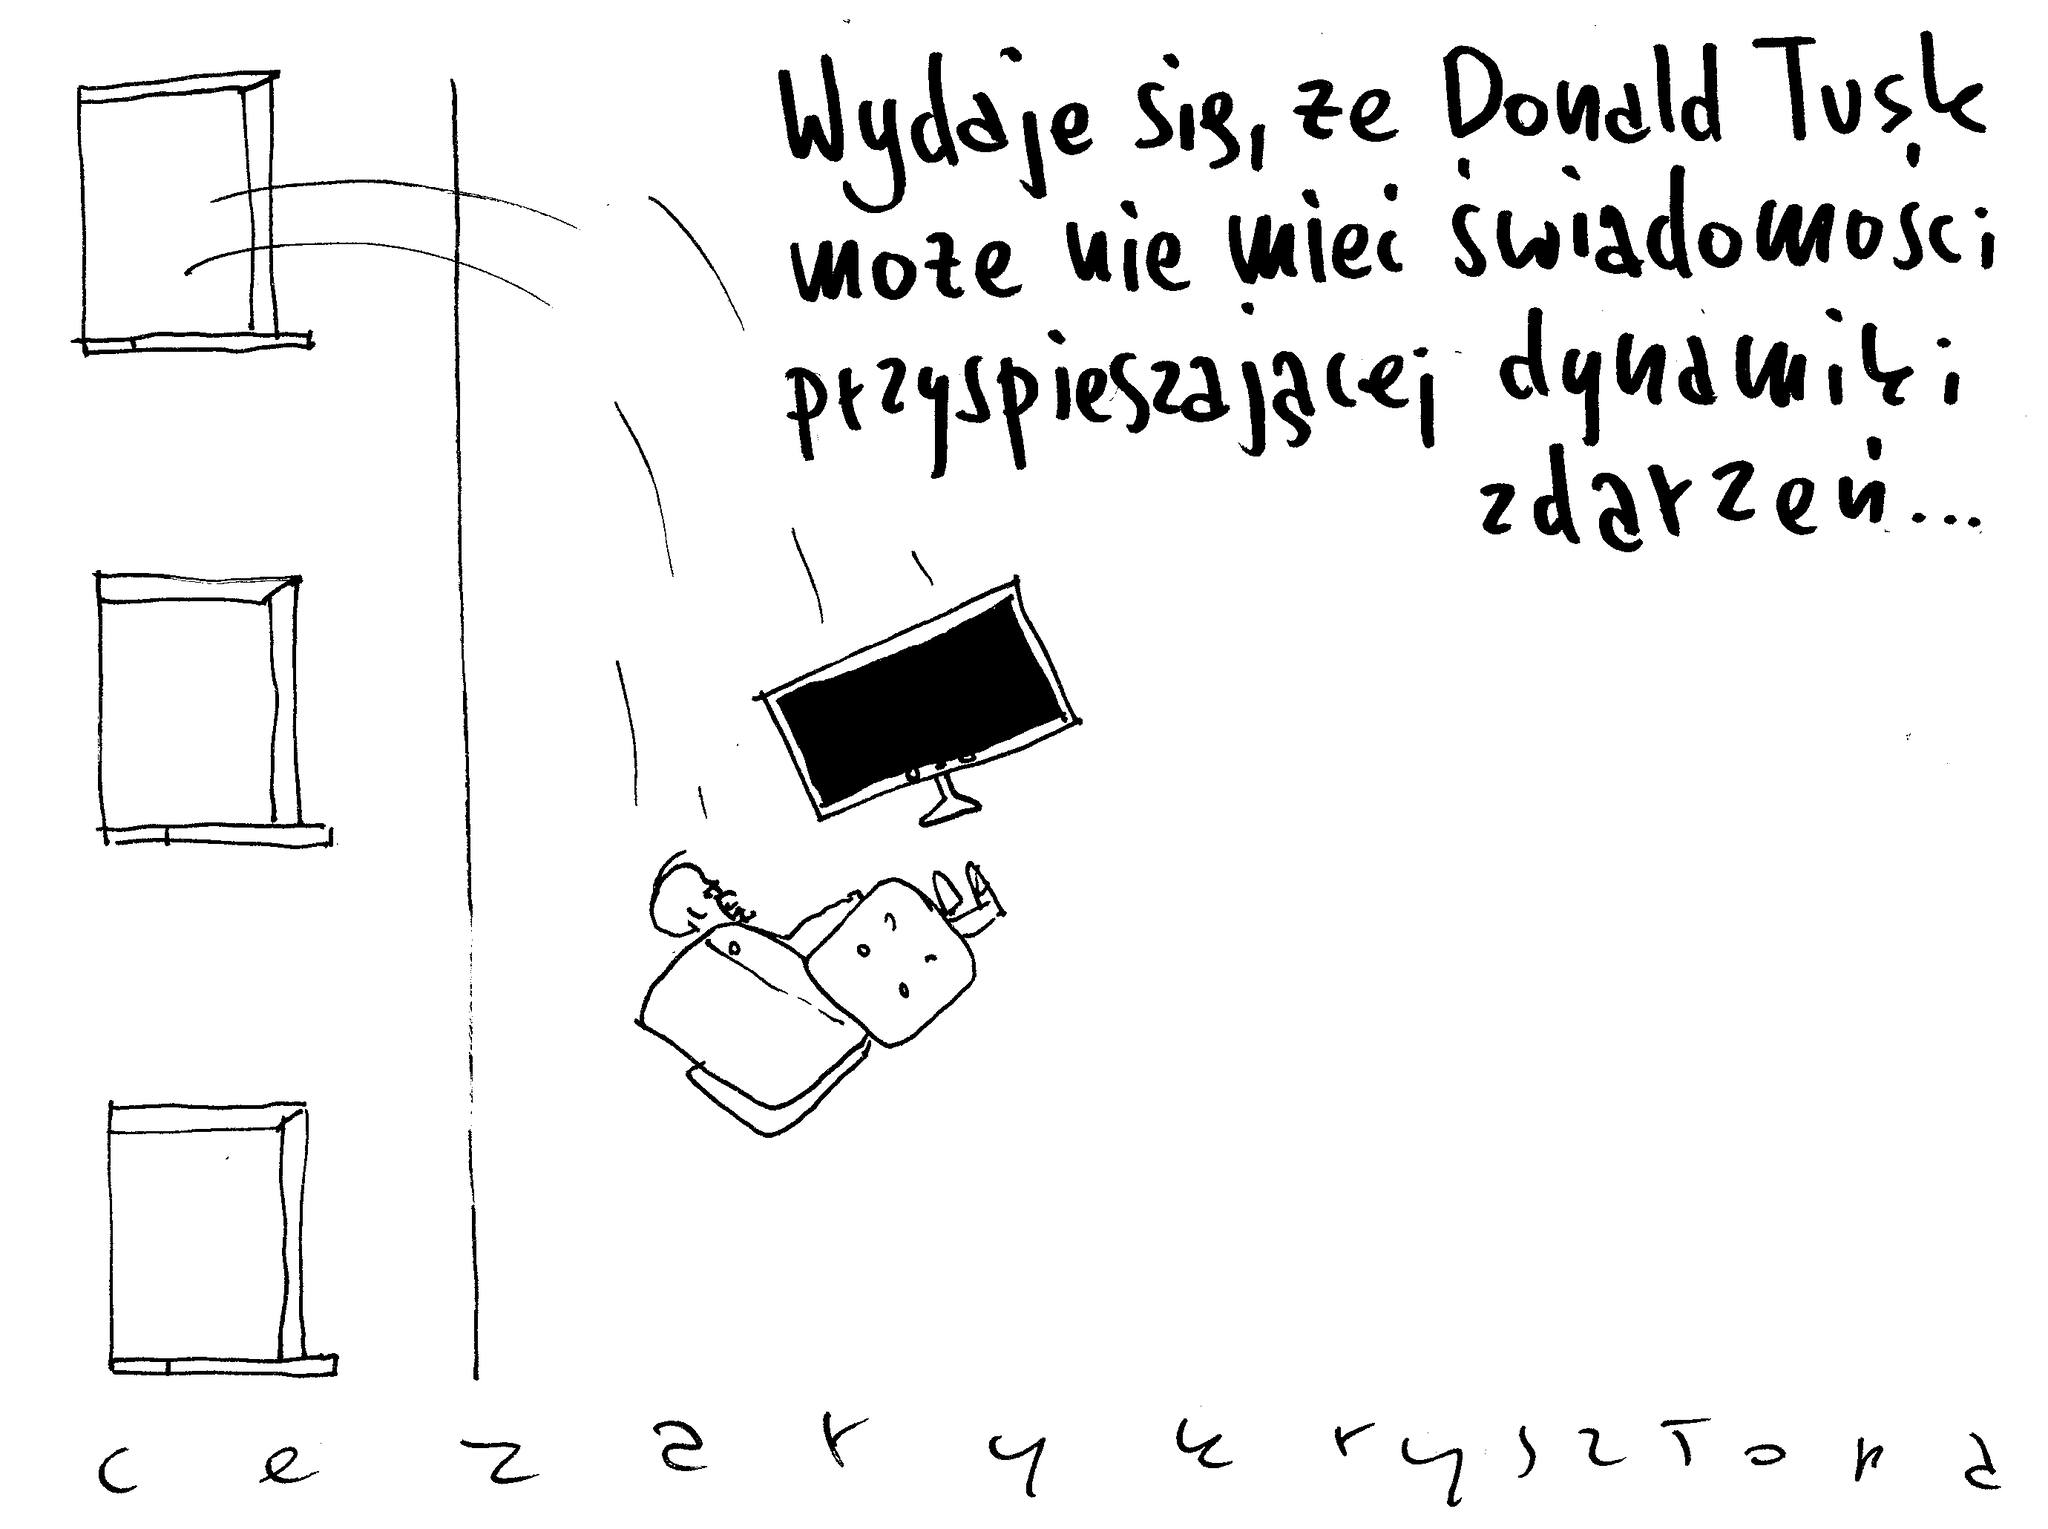 Wydaje się, że Donald Tusk
może nie mieć świadomości
przyspieszającej dynamiki
zdarzeń...
cezary krysztopa